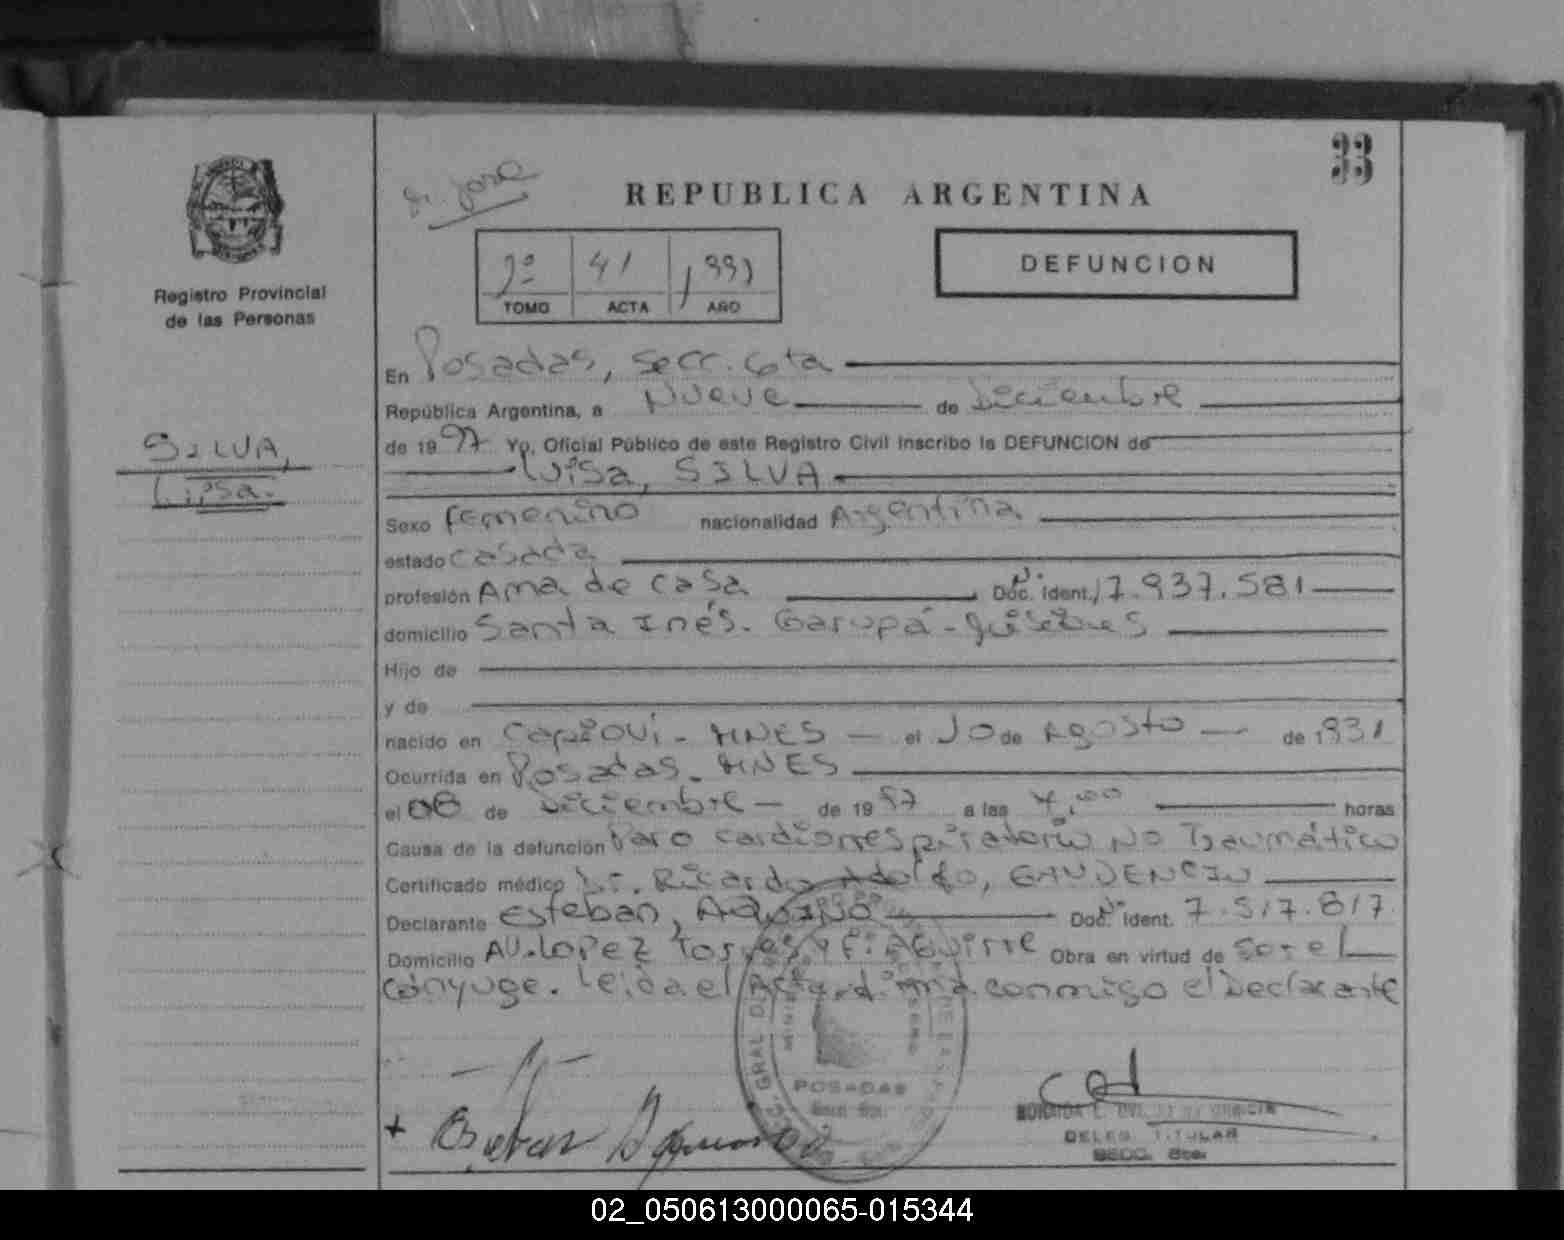 33
REPUBLICA ARGENTINA
Registro Provincial
de las Personas
2º 41 1997
TOMO ACTA AÑO
DEFUNCION
SILVA,
Luisa.
En Posadas, Secc. 6ta
República Argentina, a Nueve de Diciembre
de 1997 Yo, Oficial Público de este Registro Civil Inscribo la DEFUNCION de
Luisa, SILVA
Sexo Femenino nacionalidad Argentina
estado Casada
profesión Ama de casa Nº Doc. Ident. 17.937.581
domicilio Santa Inés. Garupá - Misiones
Hijo de
y de
nacido en Capioví - MNES el 10 de Agosto de 1931
Ocurrida en Posadas. MNES
el 08 de Diciembre de 1997 a las 4,00 horas
Causa de la defunción Paro cardiorrespiratorio No Traumático
Certificado médico Dr. Ricardo Adolfo, GAUDENCIO
Declarante Esteban, AQUINO Nº Doc. Ident. 7.517.817
Domicilio AV. Lopez Torres y F. AGUIRRE Obra en virtud de ser el
cónyuge. Leída el Acta, firma conmigo el Declarante
POSADAS
DELEG. TITULAR
SECC. 6ta.
02_050613000065-015344